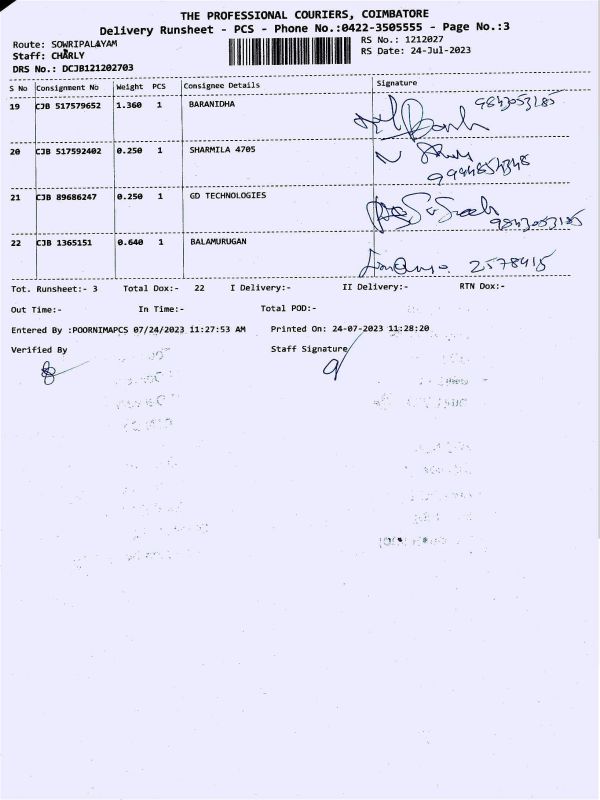 THE PROFESSIONAL COURIERS, COIMBATORE
Delivery Runsheet - PCS - Phone No.:0422-3505555 - Page No.:3
Route: SOWRIPALAYAM
RS No.: 1212027
Staff: CHARLY
RS Date: 24-Jul-2023
DRS No.: DCJB121202703
S No Consignment No Weight PCS Consignee Details Signature
19 CJB 517579652 1.360 1 BARANIDHA
20 CJB 517592402 0.250 1 SHARMILA 4705
21 CJB 89686247 0.250 1 GD TECHNOLOGIES
22 CJB 1365151 0.640 1 BALAMURUGAN
2578415
Tot. Runsheet:- 3 Total Dox:- 22 I Delivery:- II Delivery:- RTN Dox:-
Out Time:- In Time:- Total POD:-
Entered By :POORNIMAPCS 07/24/2023 11:27:53 AM Printed On: 24-07-2023 11:28:20
Verified By Staff Signature